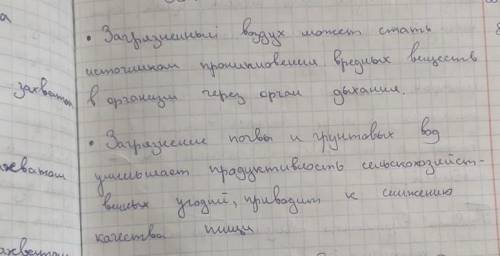 а
• Загрязненный воздух может стать
источником проникновения вредных веществ
захватом
в организм через орган дыхания.
• Загрязнение почвы и грунтовых вод
хватом
уменьшает продуктивность сельскохозяйст-
венных угодий, приводит к снижению
качества пищи